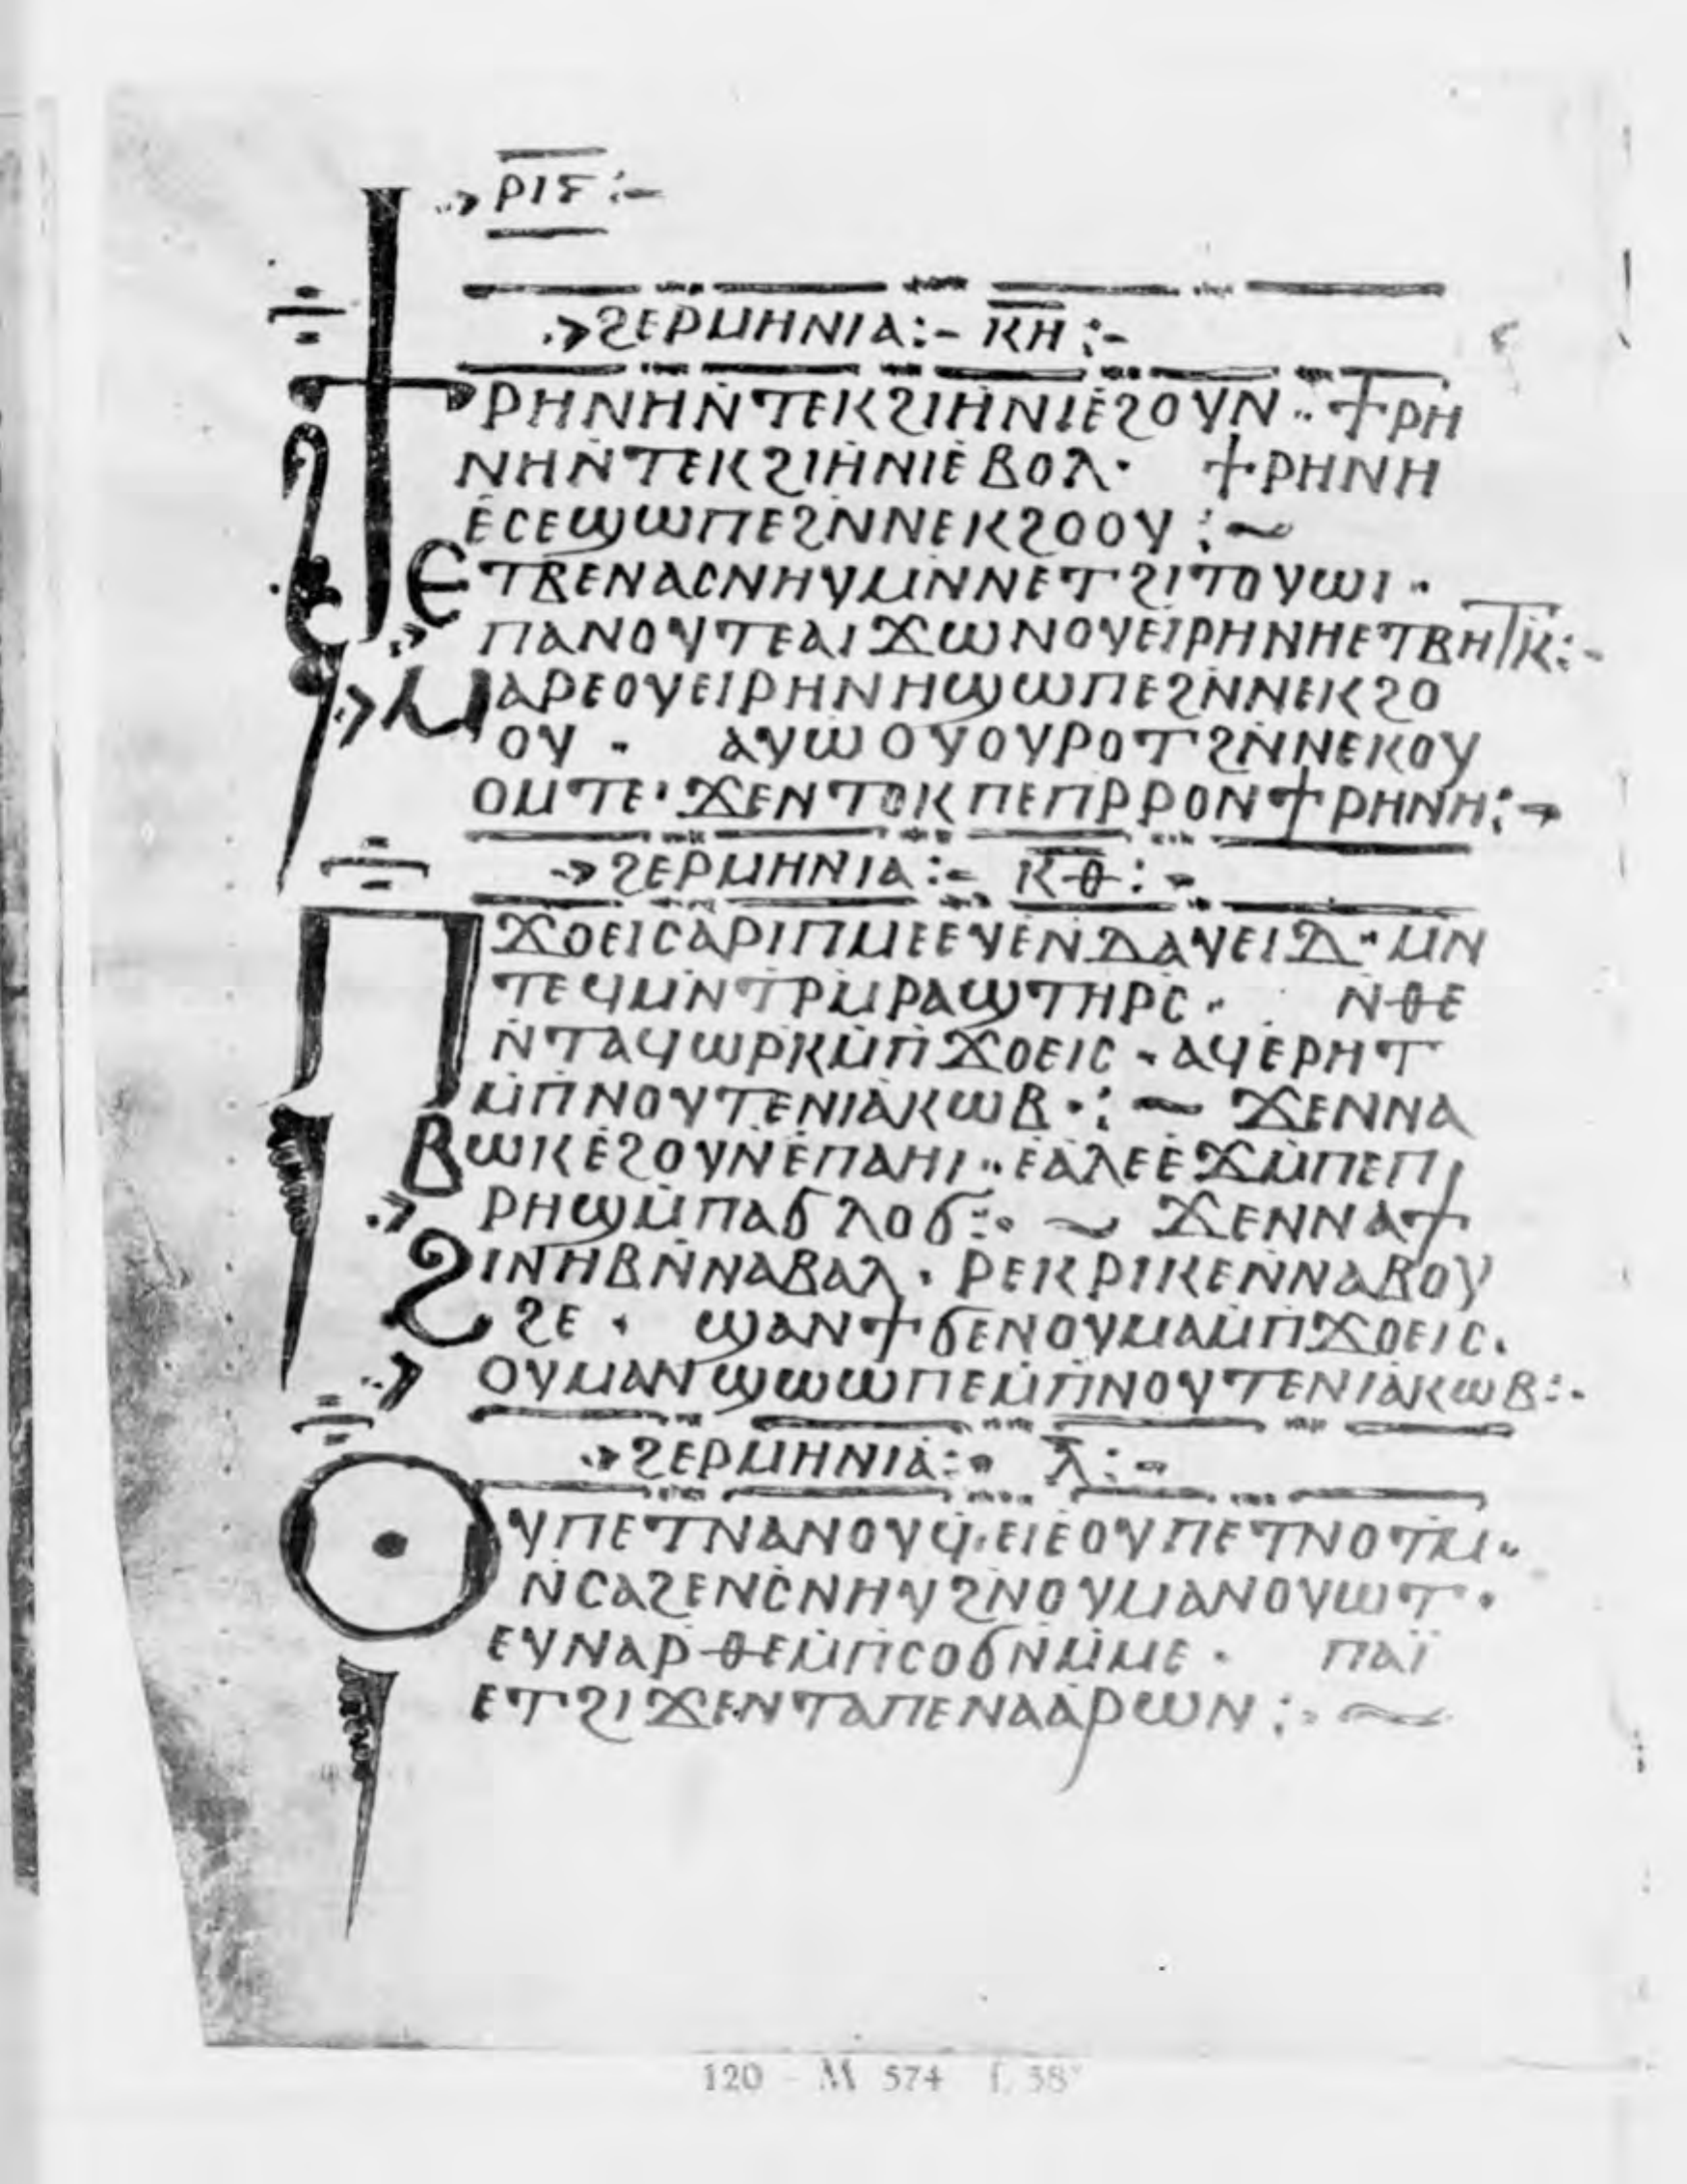 ⲣⲓⲋ:-
ϩⲉⲣⲙⲏⲛⲓⲁ:- ⲕ̅ⲏ̅:-
ϯⲣⲏⲛⲏⲛ̇ⲧⲉⲕϩⲓⲏ̇ⲛⲓⲉ̇ϩⲟⲩⲛ·· ϯⲣⲏ
ⲛⲏⲛ̇ⲧⲉⲕϩⲓⲏ̇ⲛⲓⲉ̇ⲃⲟⲗ· ϯⲣⲏⲛⲏ
ⲉ̇ⲥⲉϣⲱⲡⲉϩⲛ̇ⲛⲉⲕϩⲟⲟⲩ:~
ⲉⲧⲃⲉⲛⲁⲥⲛⲏⲩⲙⲛ̇ⲛⲉⲧϩⲓⲧⲟⲩⲱⲓ··
ⲡⲁⲛⲟⲩⲧⲉⲁⲓϫⲱⲛⲟⲩⲉⲓⲣⲏⲛⲏⲉⲧⲃⲏⲏⲧ̅ⲕ̅:-
ⲙⲁⲣⲉⲟⲩⲉⲓⲣⲏⲛⲏϣⲱⲡⲉϩⲛ̇ⲛⲉⲕϩⲟ
ⲟⲩ· ⲁⲩⲱⲟⲩⲟⲩⲣⲟⲧϩⲛ̇ⲛⲉⲕⲟⲩ
ⲟⲙⲧⲉ· ϫⲉⲛⲧⲟⲕⲡⲉⲡⲣ̅ⲣⲟⲛϯⲣⲏⲛⲏ:-
ϩⲉⲣⲙⲏⲛⲓⲁ:- ⲕ̅ⲑ̅:-
ⲡϫⲟⲉⲓⲥⲁ̇ⲣⲓⲡⲙⲉⲉⲩⲉⲛ̇ⲇⲁⲩⲉⲓⲇ·· ⲙⲛ
ⲧⲉϥⲙⲛ̇ⲧⲣⲙ̇ⲣⲁϣⲧⲏⲣⲥ̇· ⲛ̇ⲑⲉ
ⲛ̇ⲧⲁϥⲱⲣⲕ̇ⲙ̇ⲡ̇ϫⲟⲉⲓⲥ· ⲁϥⲉⲣⲏⲧ
ⲙ̇ⲡ̇ⲛⲟⲩⲧⲉⲛⲓⲁ̇ⲕⲱⲃ·:~ ϫⲉⲛⲛⲁ
ⲃⲱⲕⲉ̇ϩⲟⲩⲛⲉ̇ⲡⲁⲏⲓ·· ⲉ̇ⲁ̇ⲗⲉⲉ̇ϫⲙ̇ⲡⲉⲡ
ⲣⲏϣⲙ̇ⲡⲁϭⲗⲟϭ:· ~ ϫⲉⲛⲛⲁϯ
ϩⲓⲛⲏⲃⲛ̇ⲛⲁⲃⲁⲗ· ⲣⲉⲕⲣⲓⲕⲉⲛ̇ⲛⲁⲃⲟⲩ
ϩⲉ· ϣⲁⲛϯϭⲉⲛⲟⲩⲙⲁⲙ̇ⲡ̇ϫⲟⲉⲓⲥ·
ⲟⲩⲙⲁⲛ̇ϣⲱⲱⲡⲉⲙ̇ⲡ̇ⲛⲟⲩⲧⲉⲛⲓⲁ̇ⲕⲱⲃ:·
ϩⲉⲣⲙⲏⲛⲓⲁ̇:- ⲗ̅:-
ⲟⲩⲡⲉⲧⲛⲁⲛⲟⲩϥ̇·ⲉⲓⲉ̇ⲟⲩⲡⲉⲧⲛⲟⲧⲙ··
ⲛ̇ⲥⲁϩⲉⲛⲥ̇ⲛⲏⲩϩⲛ̇ⲟⲩⲙⲁⲛⲟⲩⲱⲧ·
ⲉⲩⲛⲁⲣ̇ⲑⲉⲙ̇ⲡ̇ⲥⲟϭⲛ̇ⲙ̇ⲙⲉ· ⲡⲁⲓ̈
ⲉⲧϩⲓϫⲉⲛⲧⲁⲡⲉⲛⲁ̇ⲁ̇ⲣⲱⲛ:·~
120 - M 574 f. 58ᵛ